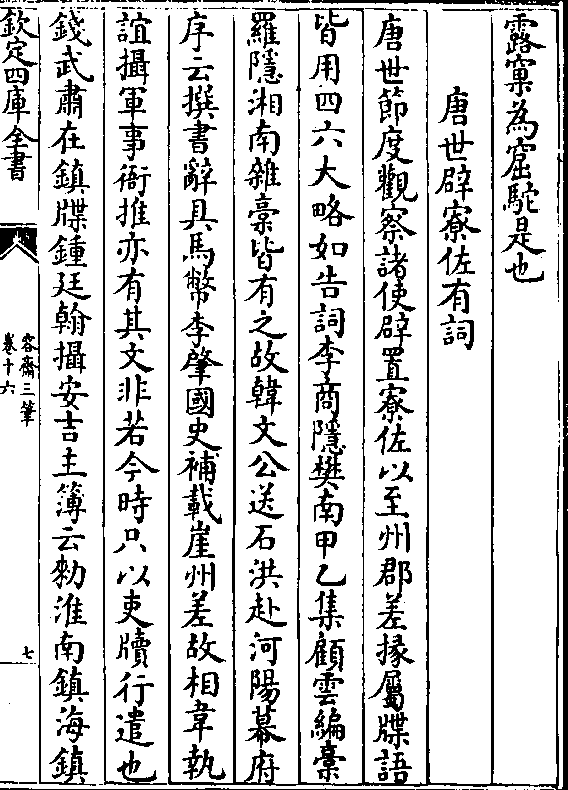 露窠為窟駝是也
唐世辟寮佐有詞
唐世節度觀察諸使辟置寮佐以至州郡差掾屬牒語
皆用四六大略如告詞李商隱樊南甲乙集顧雲編槀
羅隱湘南雜槀皆有之故韓文公送石洪赴河陽幕府
序云撰書辭具馬幣李肇國史補載崖州差故相韋執
誼攝軍事衙推亦有其文非若今時只以吏牘行遣也
錢武肅在鎮牒鍾廷翰攝安吉主簿云勑淮南鎮海鎮
欽定四庫全書
容齋三筆
卷十六
七